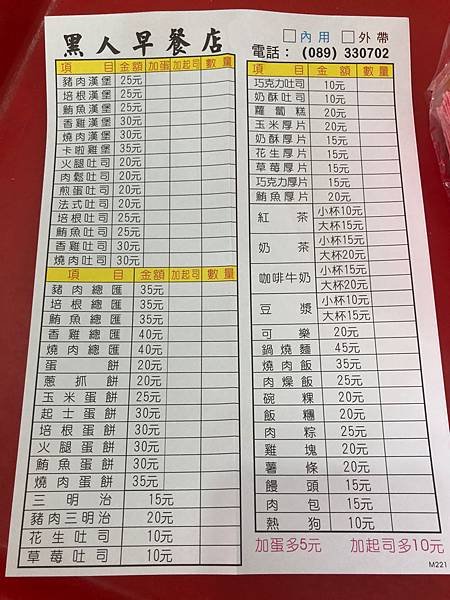 黑人早餐店
□內用 □外帶
電話：(089) 330702
項目 金額 加蛋 加起司 數量
豬肉漢堡 25元
培根漢堡 25元
鮪魚漢堡 25元
香雞漢堡 30元
燒肉漢堡 30元
卡啦雞堡 35元
火腿吐司 20元
肉鬆吐司 20元
煎蛋吐司 20元
法式吐司 20元
培根吐司 25元
鮪魚吐司 25元
香雞吐司 30元
燒肉吐司 30元
項目 金額 加起司 數量
豬肉總匯 35元
培根總匯 35元
鮪魚總匯 35元
香雞總匯 40元
燒肉總匯 40元
蛋餅 20元
蔥抓餅 20元
玉米蛋餅 25元
起士蛋餅 30元
培根蛋餅 30元
火腿蛋餅 30元
鮪魚蛋餅 30元
燒肉蛋餅 35元
三明治 15元
豬肉三明治 20元
花生吐司 10元
草莓吐司 10元
項目 金額 數量
巧克力吐司 10元
奶酥吐司 10元
蘿蔔糕 20元
玉米厚片 20元
奶酥厚片 15元
花生厚片 15元
草莓厚片 15元
巧克力厚片 15元
鮪魚厚片 20元
紅茶 小杯10元
大杯15元
奶茶 小杯15元
大杯20元
咖啡牛奶 小杯15元
大杯20元
豆漿 小杯10元
大杯15元
可樂 20元
鍋燒麵 45元
燒肉飯 35元
肉燥飯 25元
碗粿 20元
飯糰 20元
肉粽 25元
雞塊 20元
薯條 20元
饅頭 15元
肉包 15元
熱狗 10元
加蛋多5元 加起司多10元
M221